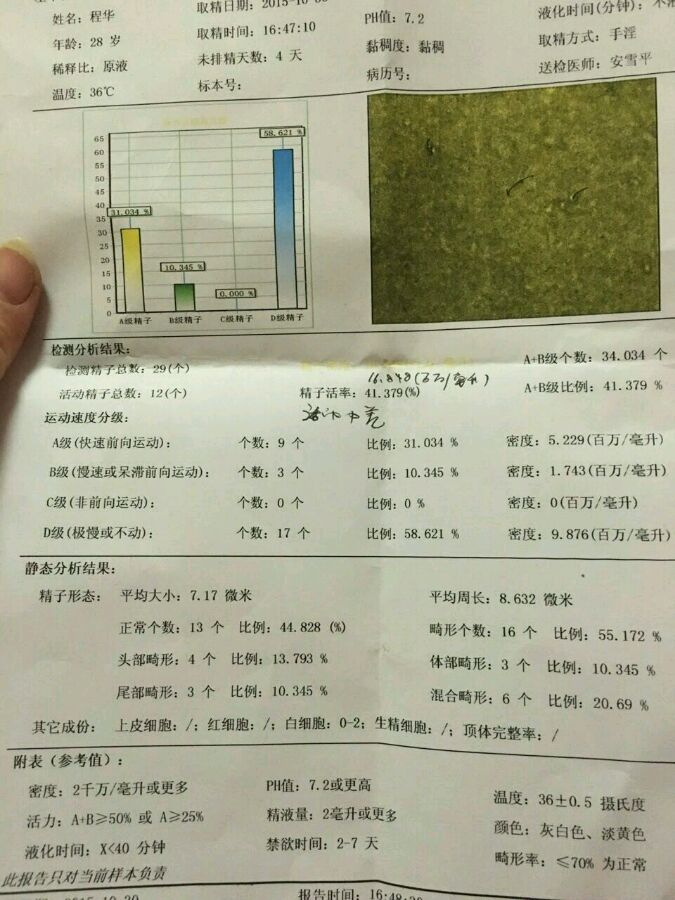 姓名：程华 取精日期：2015-10- PH值：7.2 液化时间(分钟)：不
年龄：28 岁 取精时间：16:47:10 黏稠度：黏稠 取精方式：手淫
稀释比：原液 未排精天数：4 天 病历号： 送检医师：安雪平
温度：36℃ 标本号：
65
60
55
50
45
40
35
30
25
20
15
10
5
0
31.034 %
10.345 %
0.000 %
58.621 %
A级精子 B级精子 C级精子 D级精子
检测分析结果：
检测精子总数：29(个) 16.848(百万/毫升) A+B级个数：34.034 个
活动精子总数：12(个) 精子活率：41.379(%) A+B级比例：41.379 %
运动速度分级：
A级(快速前向运动)： 个数：9 个 比例：31.034 % 密度：5.229(百万/毫升)
B级(慢速或呆滞前向运动)： 个数：3 个 比例：10.345 % 密度：1.743(百万/毫升)
C级(非前向运动)： 个数：0 个 比例：0 % 密度：0(百万/毫升)
D级(极慢或不动)： 个数：17 个 比例：58.621 % 密度：9.876(百万/毫升)
静态分析结果：
精子形态： 平均大小：7.17 微米 平均周长：8.632 微米
正常个数：13 个 比例：44.828 (%) 畸形个数：16 个 比例：55.172 %
头部畸形：4 个 比例：13.793 % 体部畸形：3 个 比例：10.345 %
尾部畸形：3 个 比例：10.345 % 混合畸形：6 个 比例：20.69 %
其它成份： 上皮细胞：/；红细胞：/；白细胞：0-2；生精细胞：/；顶体完整率：/
附表（参考值）：
密度：2千万/毫升或更多 PH值：7.2或更高 温度：36±0.5 摄氏度
活力：A+B≥50% 或 A≥25% 精液量：2毫升或更多 颜色：灰白色、淡黄色
液化时间：X<40 分钟 禁欲时间：2-7 天 畸形率：≤70% 为正常
此报告只对当前样本负责
报告时间：16:48: